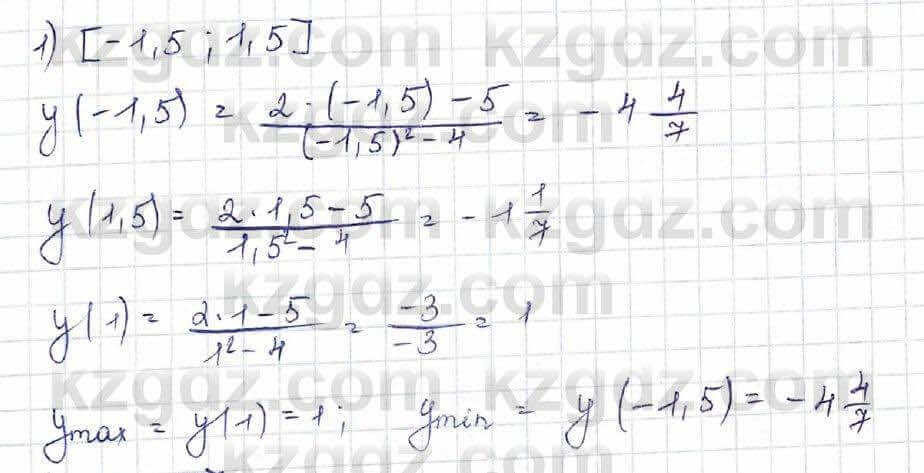 1) [-1,5 ; 1,5]
y(-1,5) = \frac{2 \cdot (-1,5) - 5}{(-1,5)^2 - 4} = -4\frac{4}{7}
y(1,5) = \frac{2 \cdot 1,5 - 5}{1,5^2 - 4} = -1\frac{1}{7}
y(1) = \frac{2 \cdot 1 - 5}{1^2 - 4} = \frac{-3}{-3} = 1
y_{max} = y(1) = 1; y_{min} = y(-1,5) = -4\frac{4}{7}
kzgdz.com